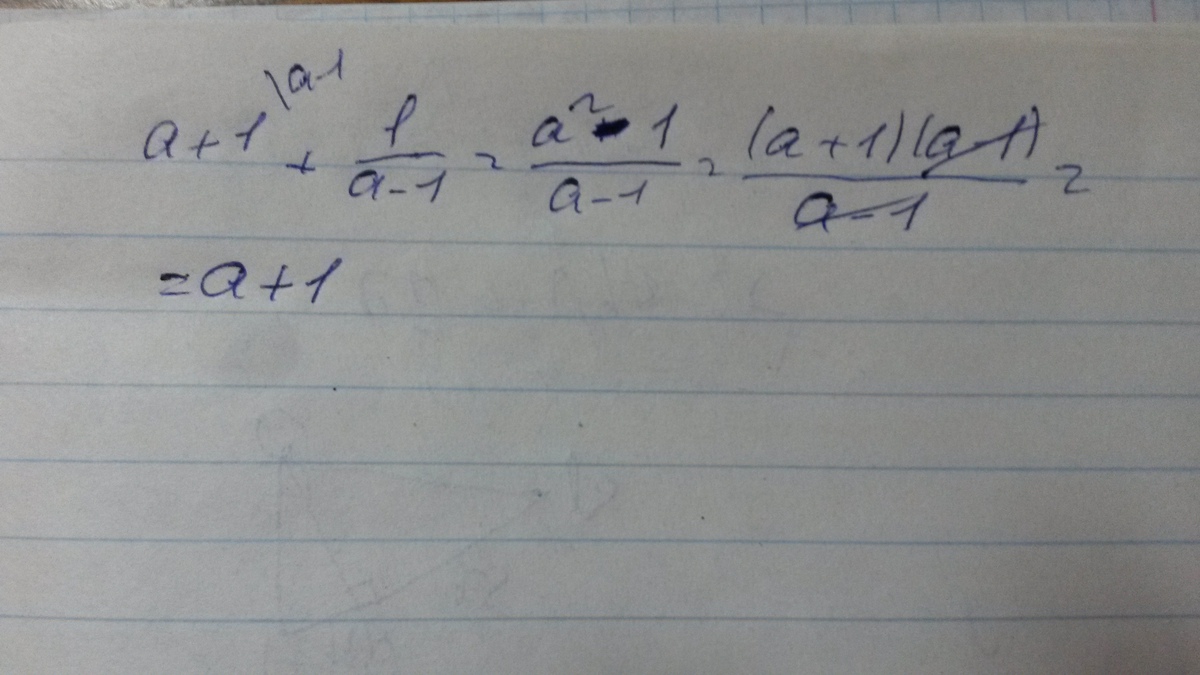 a+1 \a-1 + 1/(a-1) = (a²-1)/(a-1) = ((a+1)(a-1))/(a-1) =
= a+1